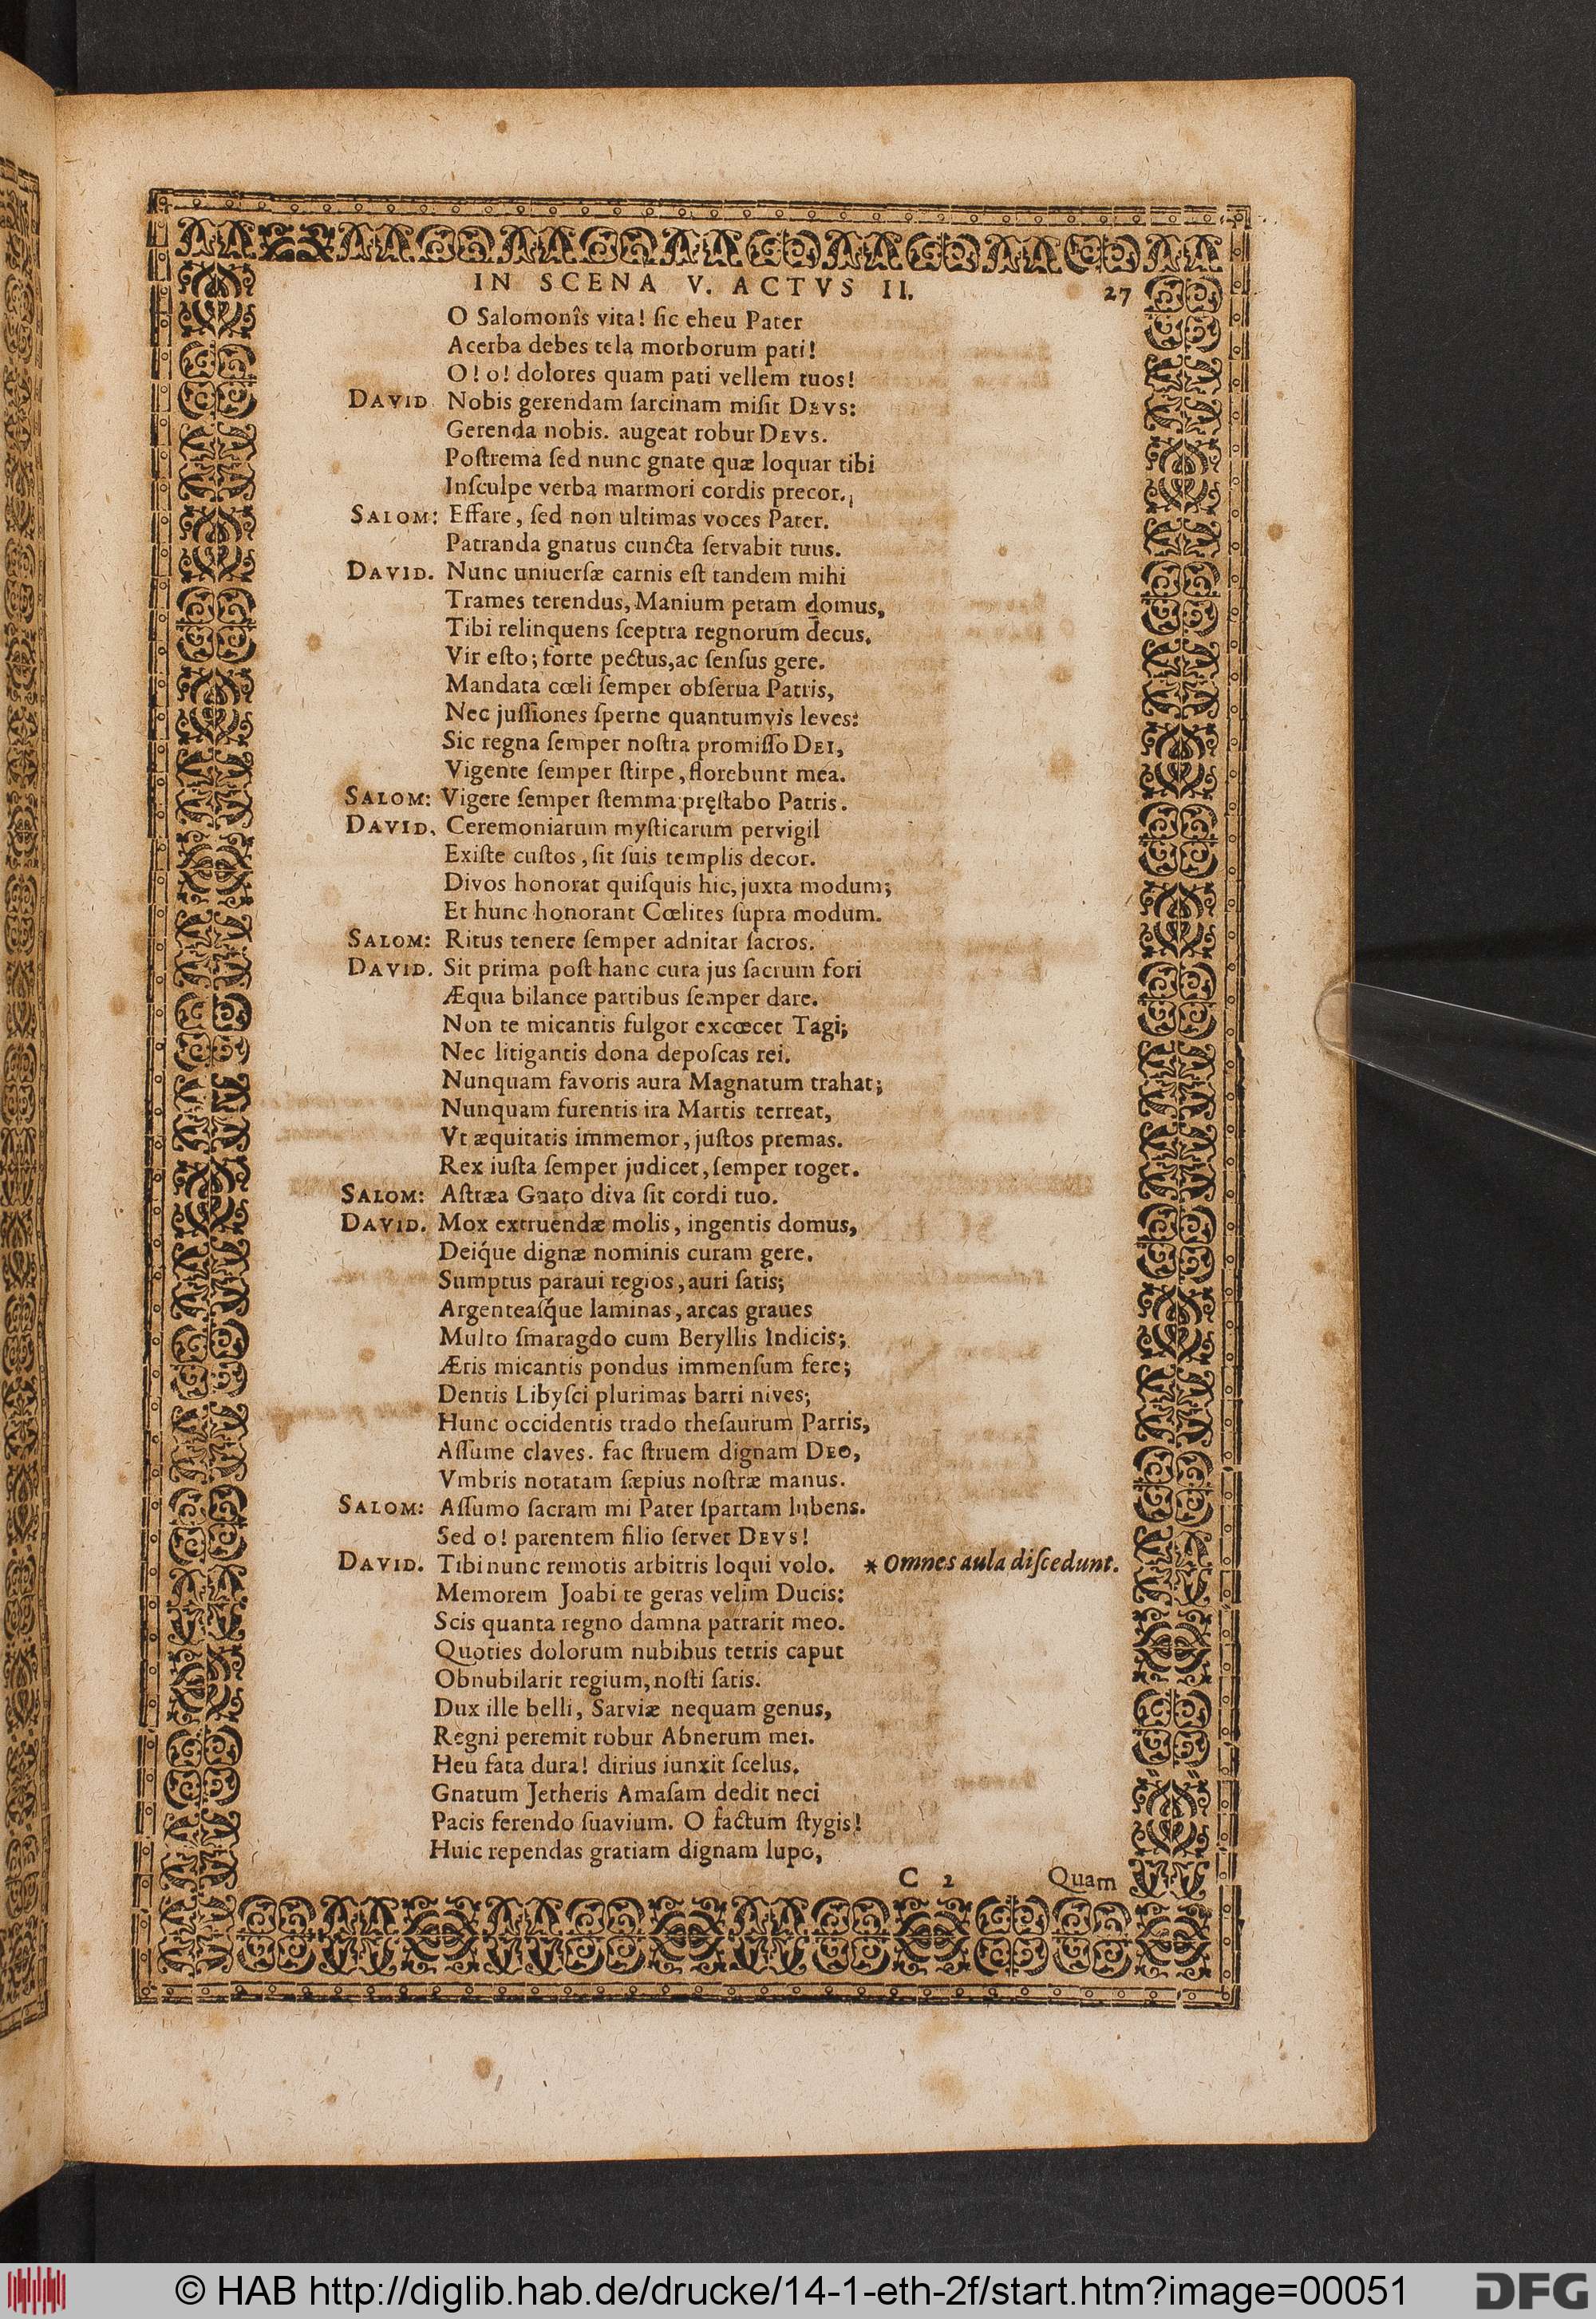 IN SCENA V. ACTVS II. 27
O Salomonîs vita! ſic eheu Pater
Acerba debes tela morborum pati!
O! o! dolores quam pati vellem tuos!
DAVID Nobis gerendam ſarcinam miſit DEVS:
Gerenda nobis. augeat robur DEVS.
Poſtrema ſed nunc gnate quæ loquar tibi
Inſculpe verba marmori cordis precor.
SALOM: Effare, ſed non ultimas voces Pater.
Patranda gnatus cuncta ſervabit tuus.
DAVID. Nunc uniuerſæ carnis eſt tandem mihi
Trames terendus, Manium petam domus,
Tibi relinquens ſceptra regnorum decus.
Vir eſto; forte pectus, ac ſenſus gere.
Mandata cœli ſemper obſerua Patris,
Nec juſſiones ſperne quantumvis leves:
Sic regna ſemper noſtra promiſſo DEI,
Vigente ſemper ſtirpe, florebunt mea.
SALOM: Vigere ſemper ſtemma pręſtabo Patris.
DAVID. Ceremoniarum myſticarum pervigil
Exiſte cuſtos, ſit ſuis templis decor.
Divos honorat quiſquis hic, juxta modum;
Et hunc honorant Cœlites ſupra modum.
SALOM: Ritus tenere ſemper adnitar ſacros.
DAVID. Sit prima poſt hanc cura jus ſacrum fori
Æqua bilance partibus ſemper dare.
Non te micantis fulgor excœcet Tagi;
Nec litigantis dona depoſcas rei.
Nunquam favoris aura Magnatum trahat;
Nunquam furentis ira Martis terreat,
Vt æquitatis immemor, juſtos premas.
Rex iuſta ſemper judicet, ſemper roget.
SALOM: Aſtræa Gnato diva ſit cordi tuo.
DAVID. Mox extruendæ molis, ingentis domus,
Deiq́ue dignæ nominis curam gere.
Sumptus paraui regios, auri ſatis;
Argenteaſq́ue laminas, arcas graues
Multo ſmaragdo cum Beryllis Indicis;
Æris micantis pondus immenſum fere;
Dentis Libyſci plurimas barri nives;
Hunc occidentis trado theſaurum Patris,
Aſſume claves. fac ſtruem dignam DEO,
Vmbris notatam ſæpius noſtræ manus.
SALOM: Aſſumo ſacram mi Pater ſpartam lubens.
Sed o! parentem filio ſervet DEVS!
DAVID. Tibi nunc remotis arbitris loqui volo. * Omnes aula diſcedunt.
Memorem Joabi te geras velim Ducis:
Scis quanta regno damna patrarit meo.
Quoties dolorum nubibus tetris caput
Obnubilarit regium, noſti ſatis.
Dux ille belli, Sarviæ nequam genus,
Regni peremit robur Abnerum mei.
Heu fata dura! dirius iunxit ſcelus.
Gnatum Jetheris Amaſam dedit neci
Pacis ferendo ſuavium. O factum ſtygis!
Huic rependas gratiam dignam lupo,
C 2 Quam
© HAB http://diglib.hab.de/drucke/14-1-eth-2f/start.htm?image=00051 DFG